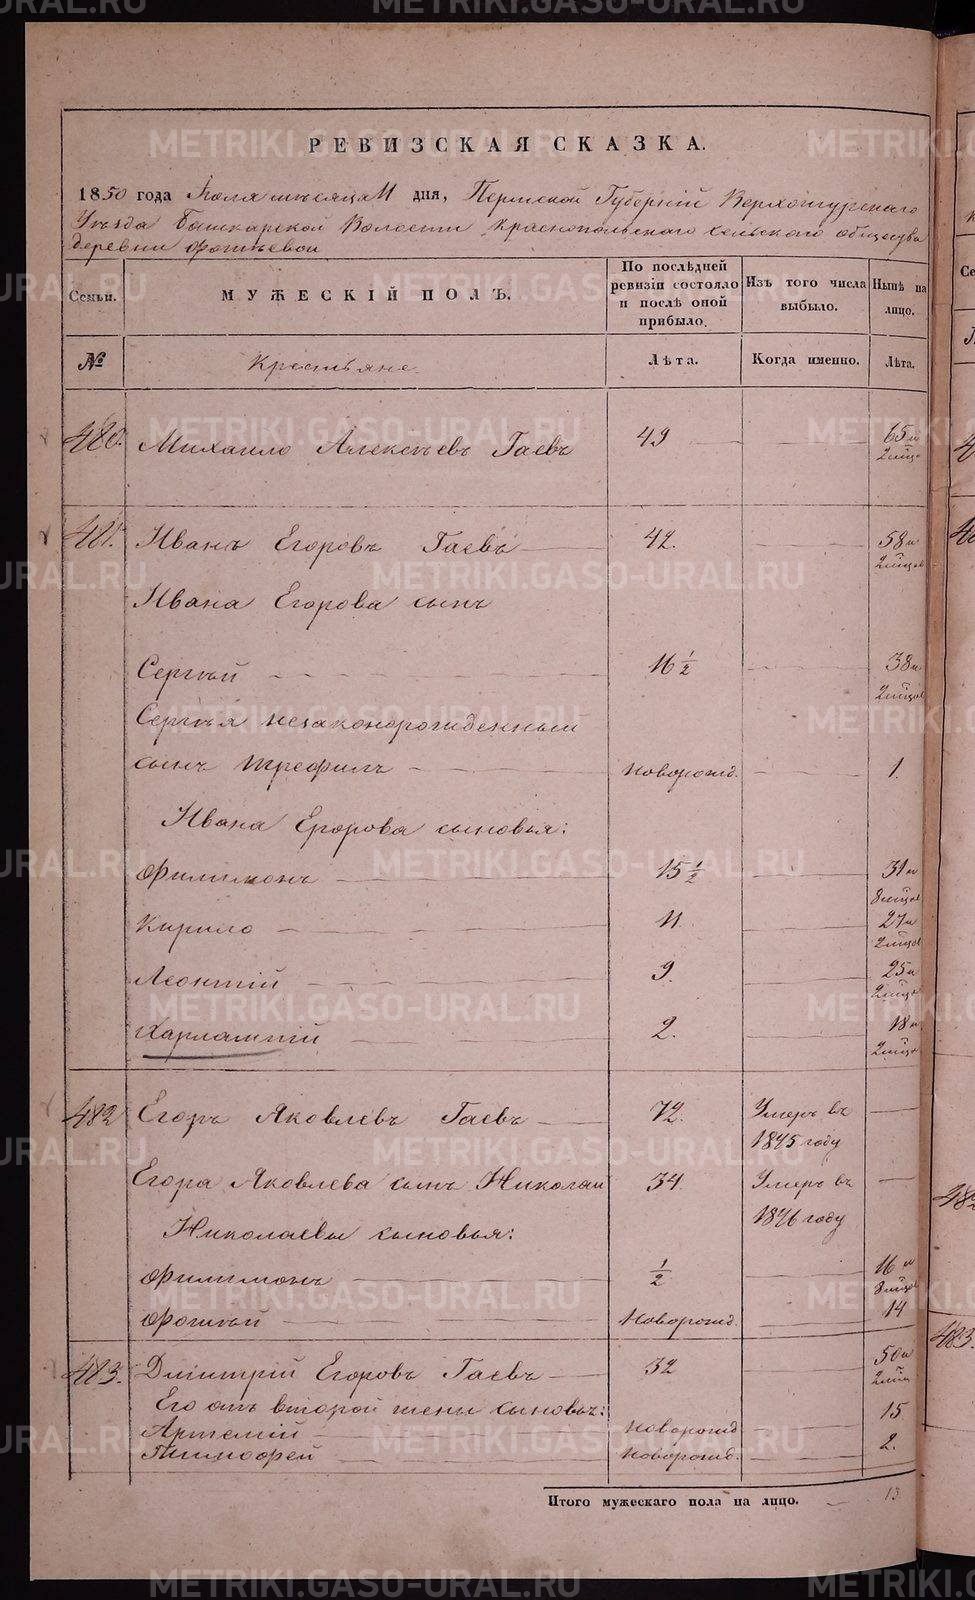 РЕВИЗСКАЯ СКАЗКА.
1850 года Июля месяца 11 дня, Пермской Губерніи Верхотурскаго
Уѣзда Башкарской Волости Краснопольскаго сельскаго общества
деревни Фотѣевой
Семьи. МУЖЕСКІЙ ПОЛЪ. По послѣдней ревизіи состояло и послѣ оной прибыло. Изъ того числа выбыло. Нынѣ на лицо.
№ Крестьяне. Лѣта. Когда именно. Лѣта.
480. Михаило Алексѣевъ Гаевъ 49 65
481. Иванъ Егоровъ Гаевъ 42. 58
Ивана Егорова сынъ
Сергѣй 16 ½ 38
Сергѣя незаконорожденный
сынъ Трефилъ новорожд. 1.
Ивана Егорова сыновья:
Филимонъ 15 ½ 31
Кирило 11. 27
Леонтій 9. 25
Харлампій 2. 18
482 Егоръ Яковлевъ Гаевъ 72. Умеръ въ
1845 году
Егора Яковлева сынъ Николай 34 Умеръ въ
1846 году
Николаевы сыновья:
Филимонъ ½ 16
Фотѣй новорожд. 14
483. Дмитрій Егоровъ Гаевъ 32 50
Его отъ второй жены сыновья:
Артемій новорожд 15
Тимофей новорожд. 2.
Итого мужескаго пола на лицо. 13
METRIKI.GASO-URAL.RU